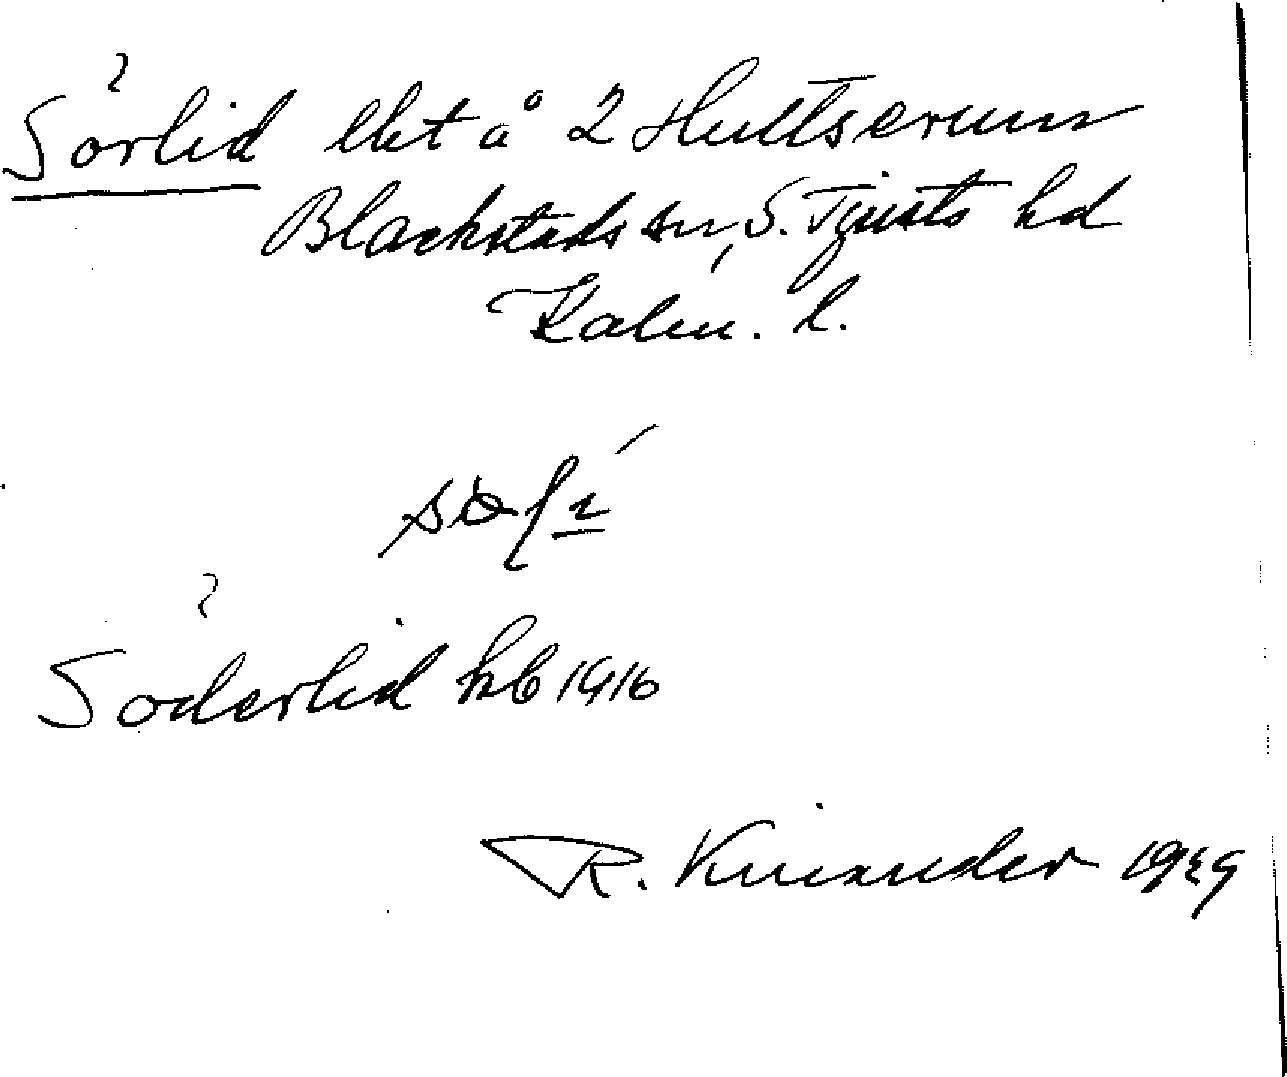 Sörlid lht å 2 Hultserum
Blackstads sn, S. Tjusts hd
Kalm. l.
Söderlid hb 1916
R. Kinander 1929